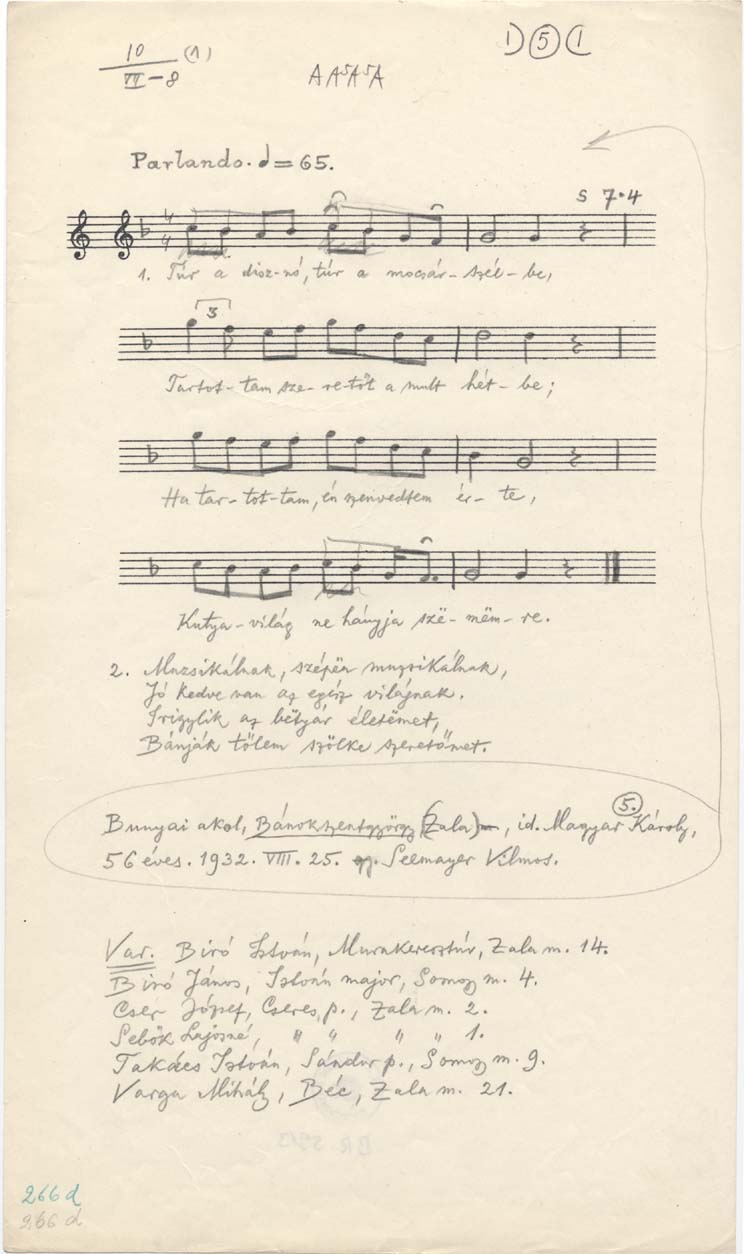 10 (1)
VII-8
AA⁵A⁵A
1) 5 (1
Parlando. ♩=65.
s 7·4
4
4
1. Túr a disz-nó, túr a mocsár-szél-be,
3
Tartot-tam sze-re-tőt a mult hét-be;
Ha tar-tot-tam, én szenvedtem ér-te,
Kutya-világ ne hányja szë-mëm-re.
2. Muzsikálnak, szépën muzsikálnak,
Jó kedve van az egész világnak.
Irigylik az bëtyár életëmet,
Bánják tőlem szőlke szeretőmet.
5.
Bunyai akol, Bánokszentgyörgy (Zala), id. Magyar Károly,
56 éves. 1932. VIII. 25. gy. Seemayer Vilmos.
Var. Biró István, Murakeresztúr, Zala m. 14.
Biró János, István major, Somogy m. 4.
Cser József, Cseres p., Zala m. 2.
Sebők Lajosné, " " " " 1.
Takács István, Sándor p., Somogy m. 9.
Varga Mihály, Béc, Zala m. 21.
266 d
266 d